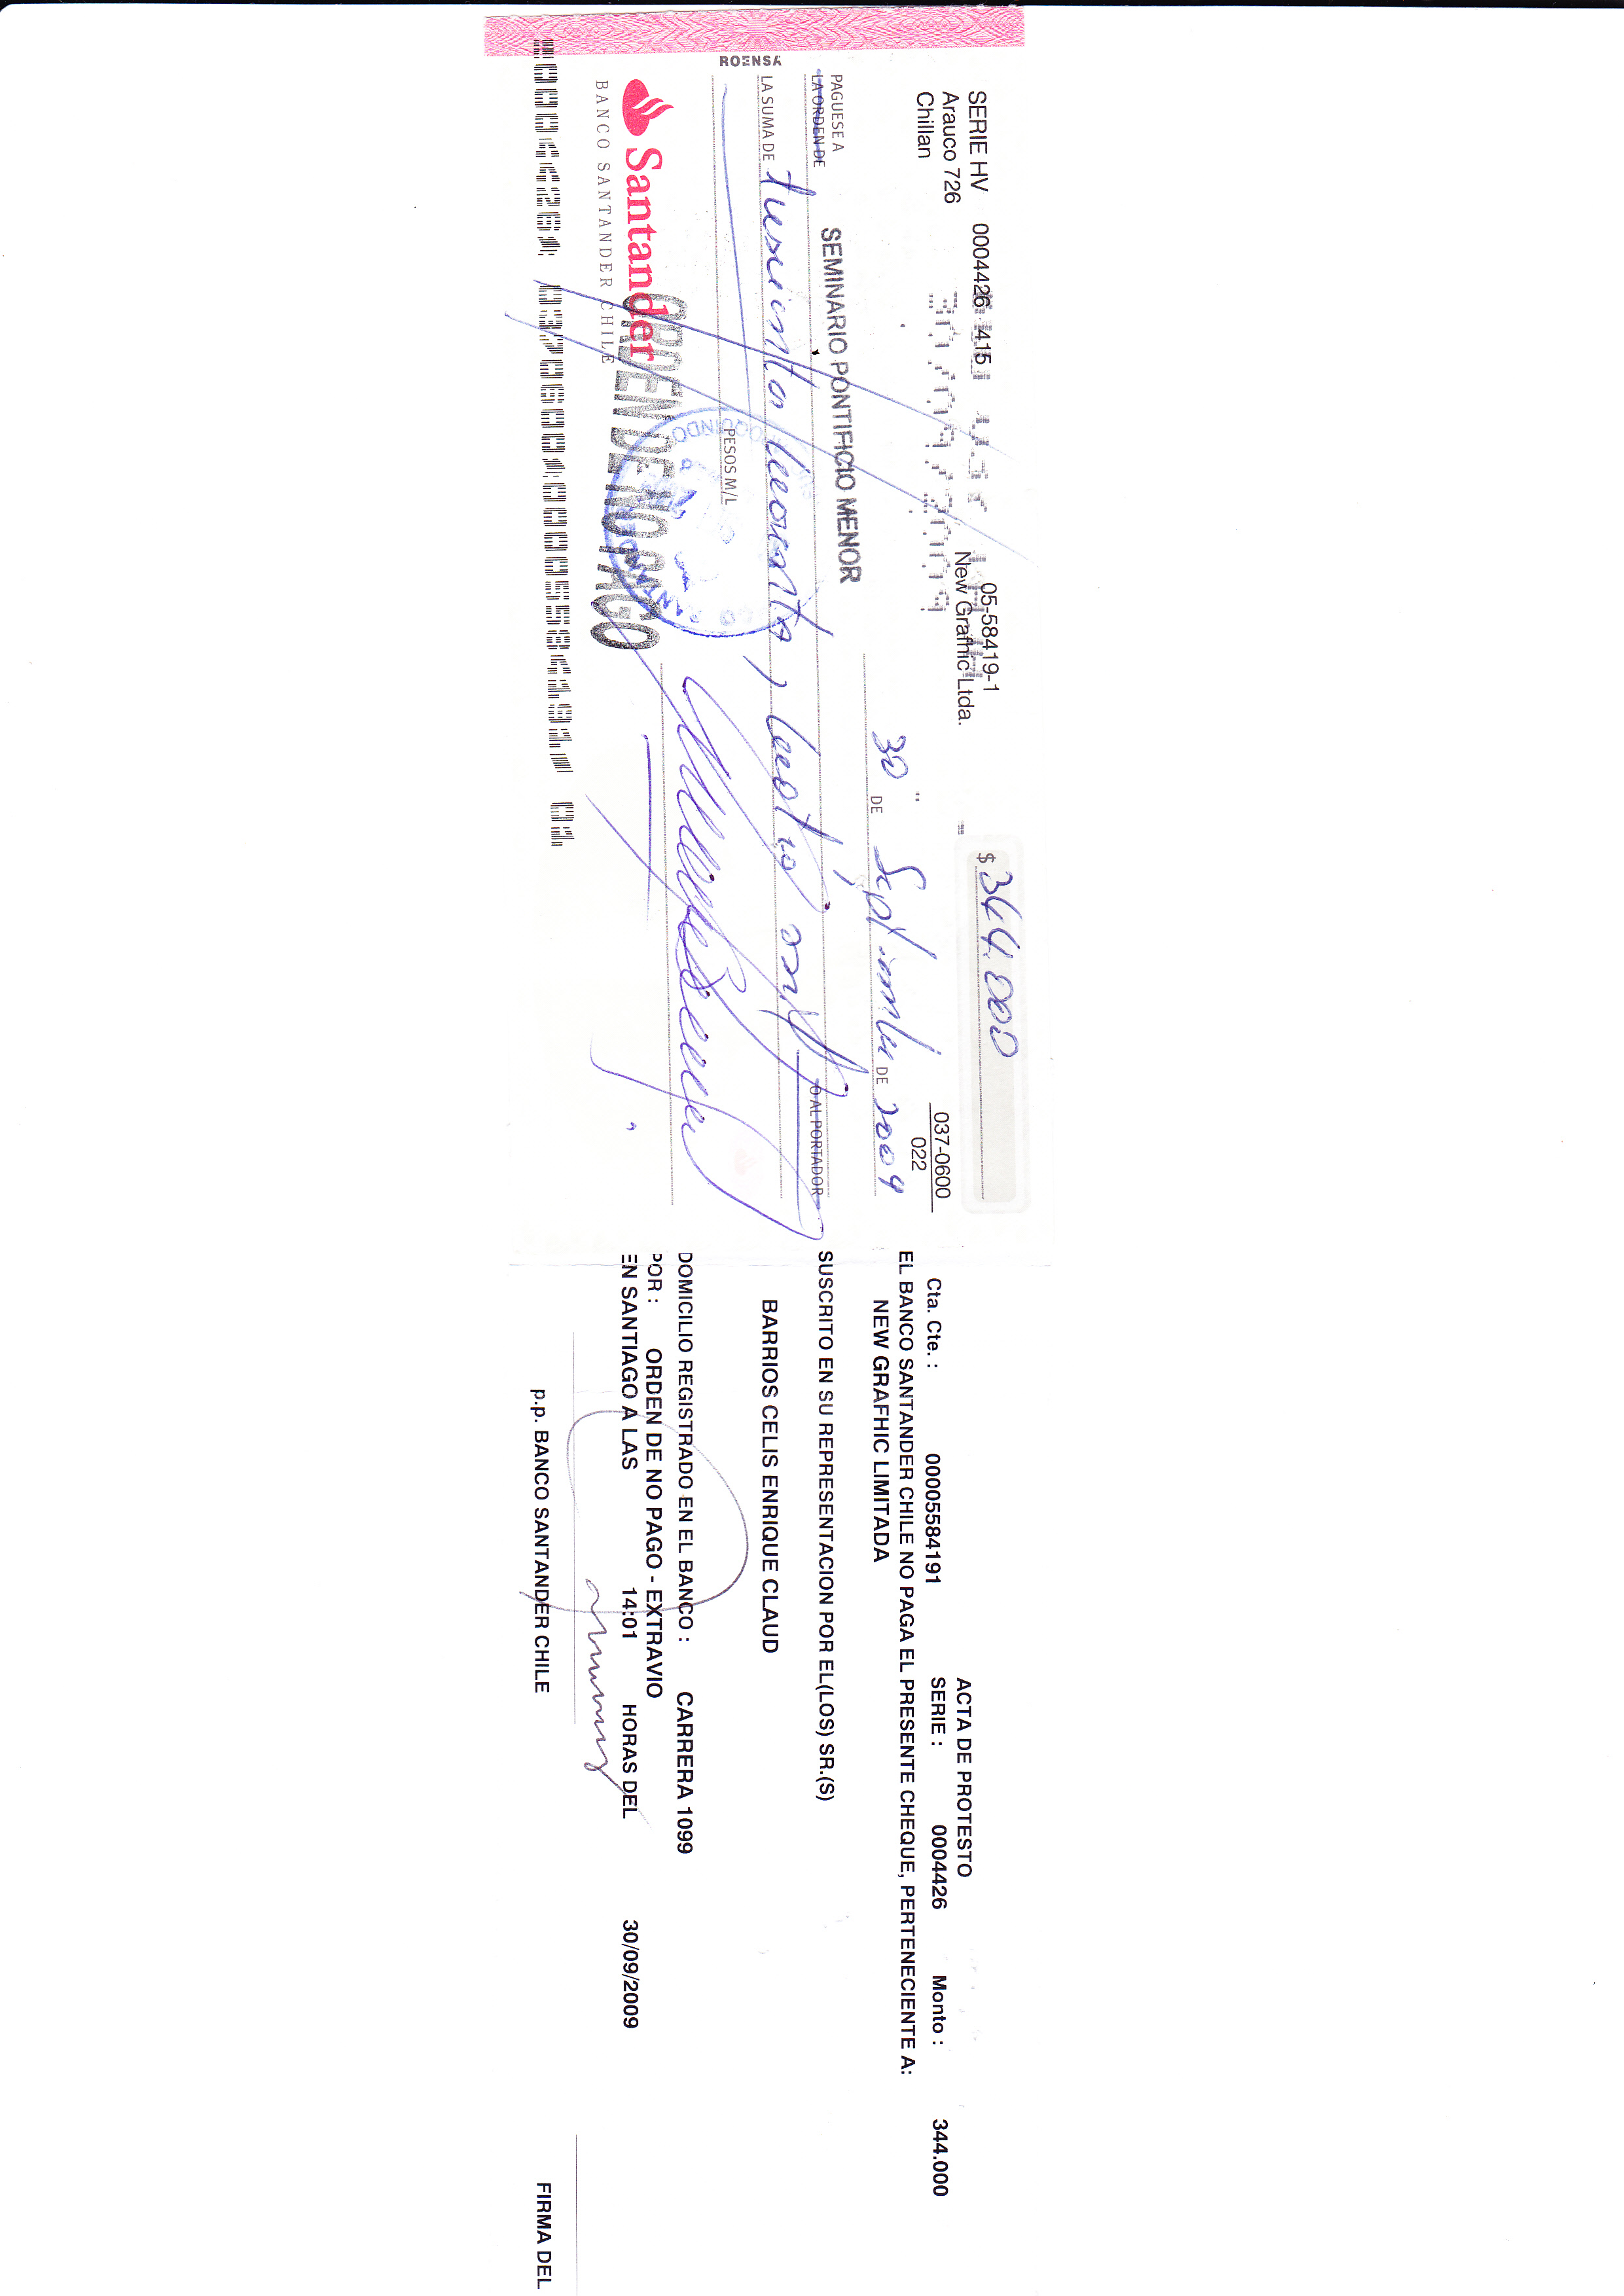 SERIE HV 0004426 415
05-58419-1
$ 344.000
Arauco 726
New Grafhic Ltda.
Chillan
037-0600
022
30 DE Septiembre DE 2009
PAGUESE A
LA ORDEN DE
SEMINARIO PONTIFICIO MENOR
O AL PORTADOR
LA SUMA DE trescientos cuarenta y cuatro mil
PESOS M/L
ROENSA
Santander
BANCO SANTANDER CHILE
ORDEN DE NO PAGO
ACTA DE PROTESTO
Cta. Cte. : 00005584191 SERIE : 0004426 Monto : 344.000
EL BANCO SANTANDER CHILE NO PAGA EL PRESENTE CHEQUE, PERTENECIENTE A:
NEW GRAFHIC LIMITADA
SUSCRITO EN SU REPRESENTACION POR EL(LOS) SR.(S)
BARRIOS CELIS ENRIQUE CLAUD
DOMICILIO REGISTRADO EN EL BANCO : CARRERA 1099
POR : ORDEN DE NO PAGO - EXTRAVIO
EN SANTIAGO A LAS 14:01 HORAS DEL 30/09/2009
p.p. BANCO SANTANDER CHILE
FIRMA DEL